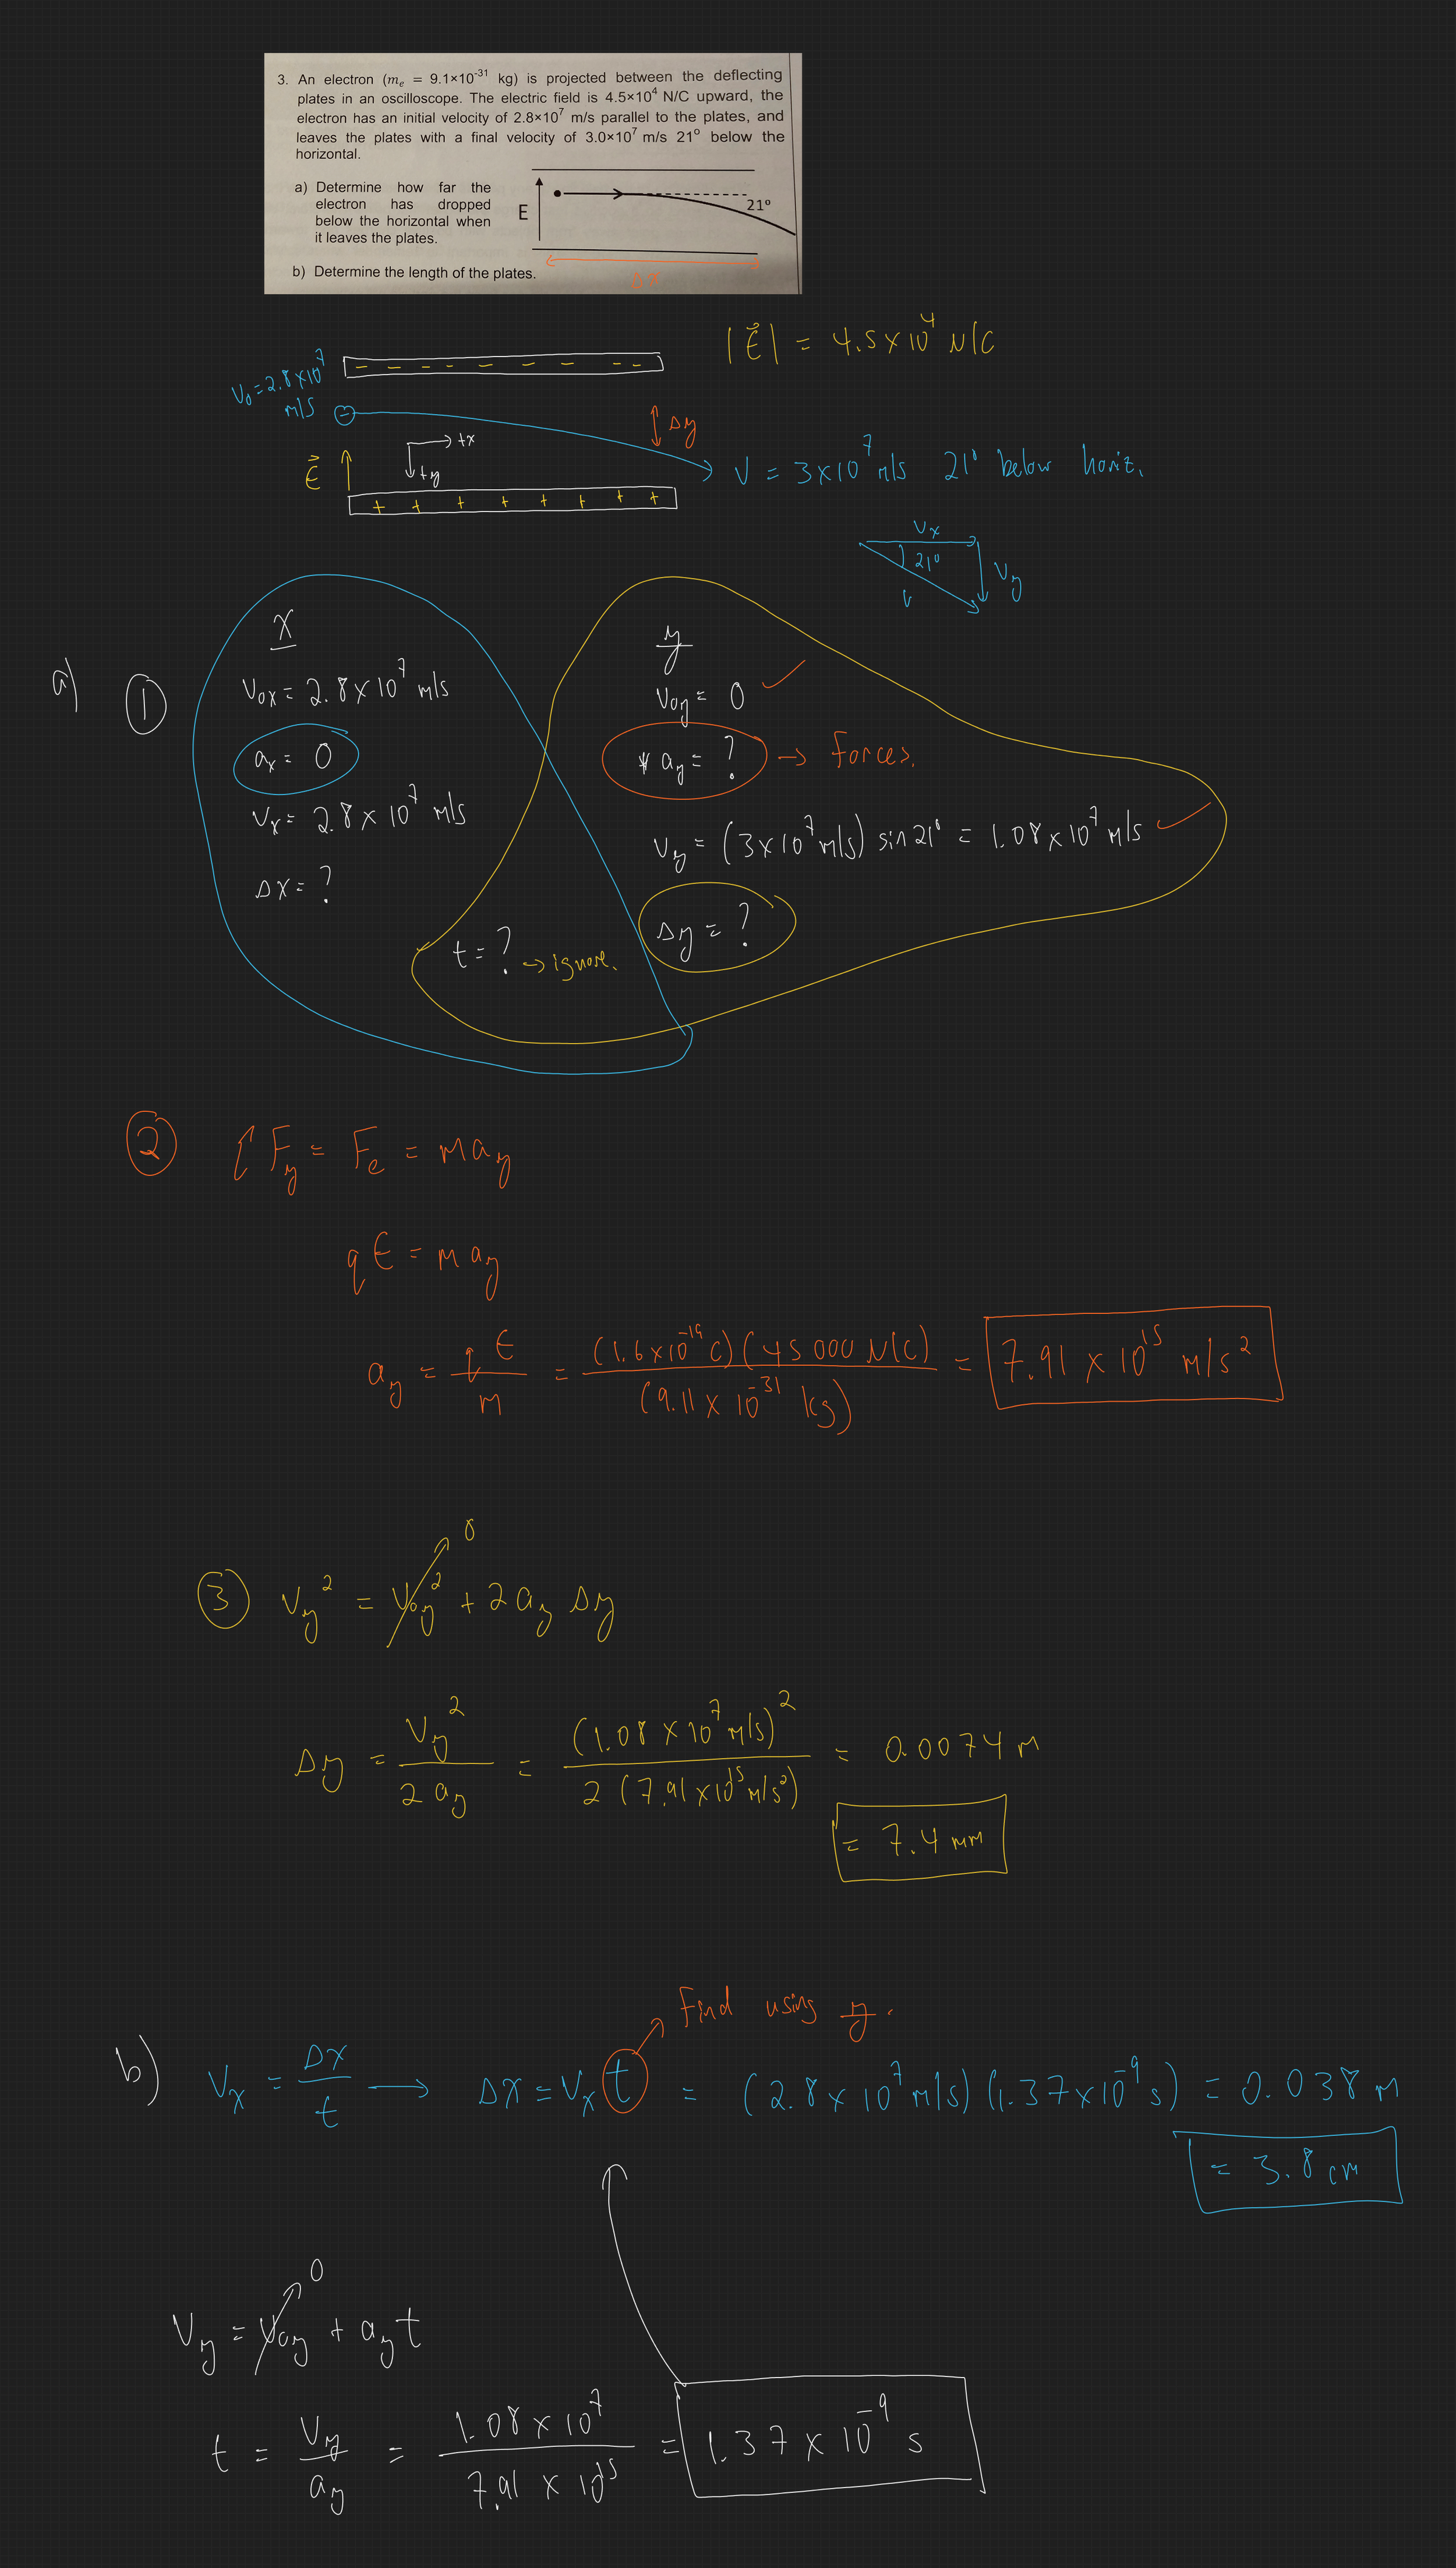 3. An electron (mₑ = 9.1×10⁻³¹ kg) is projected between the deflecting
plates in an oscilloscope. The electric field is 4.5×10⁴ N/C upward, the
electron has an initial velocity of 2.8×10⁷ m/s parallel to the plates, and
leaves the plates with a final velocity of 3.0×10⁷ m/s 21° below the
horizontal.
a) Determine how far the
electron has dropped
below the horizontal when
it leaves the plates.
E
21°
b) Determine the length of the plates.
Δx
|E⃗| = 4.5×10⁴ N/C
V₀=2.8×10⁷
m/s
− − − − − − − −
−
Δy
+x
+y
E⃗
V = 3×10⁷ m/s 21° below horiz.
+ + + + + + +
Vx
21°
Vy
V
a) ①
x
V₀x = 2.8×10⁷ m/s
ax = 0
Vx = 2.8×10⁷ m/s
Δx = ?
y
V₀y = 0 ✓
* ay = ? → Forces.
Vy = (3×10⁷ m/s) sin21° = 1.08×10⁷ m/s ✓
Δy = ?
t = ? → ignore.
② ΣFy = Fe = may
qE = may
ay = qE/m = (1.6×10⁻¹⁹ C)(45000 N/C)/(9.11×10⁻³¹ kg) = 7.91×10¹⁵ m/s²
0
③ Vy² = V₀y² + 2ayΔy
Δy = Vy²/2ay = (1.08×10⁷ m/s)²/2(7.91×10¹⁵ m/s²) = 0.0074 m
= 7.4 mm
Find using y.
b) Vx = Δx/t → Δx = Vx t = (2.8×10⁷ m/s)(1.37×10⁻⁹ s) = 0.038 m
= 3.8 cm
0
Vy = V₀y + ayt
t = Vy/ay = 1.08×10⁷/7.91×10¹⁵ = 1.37×10⁻⁹ s